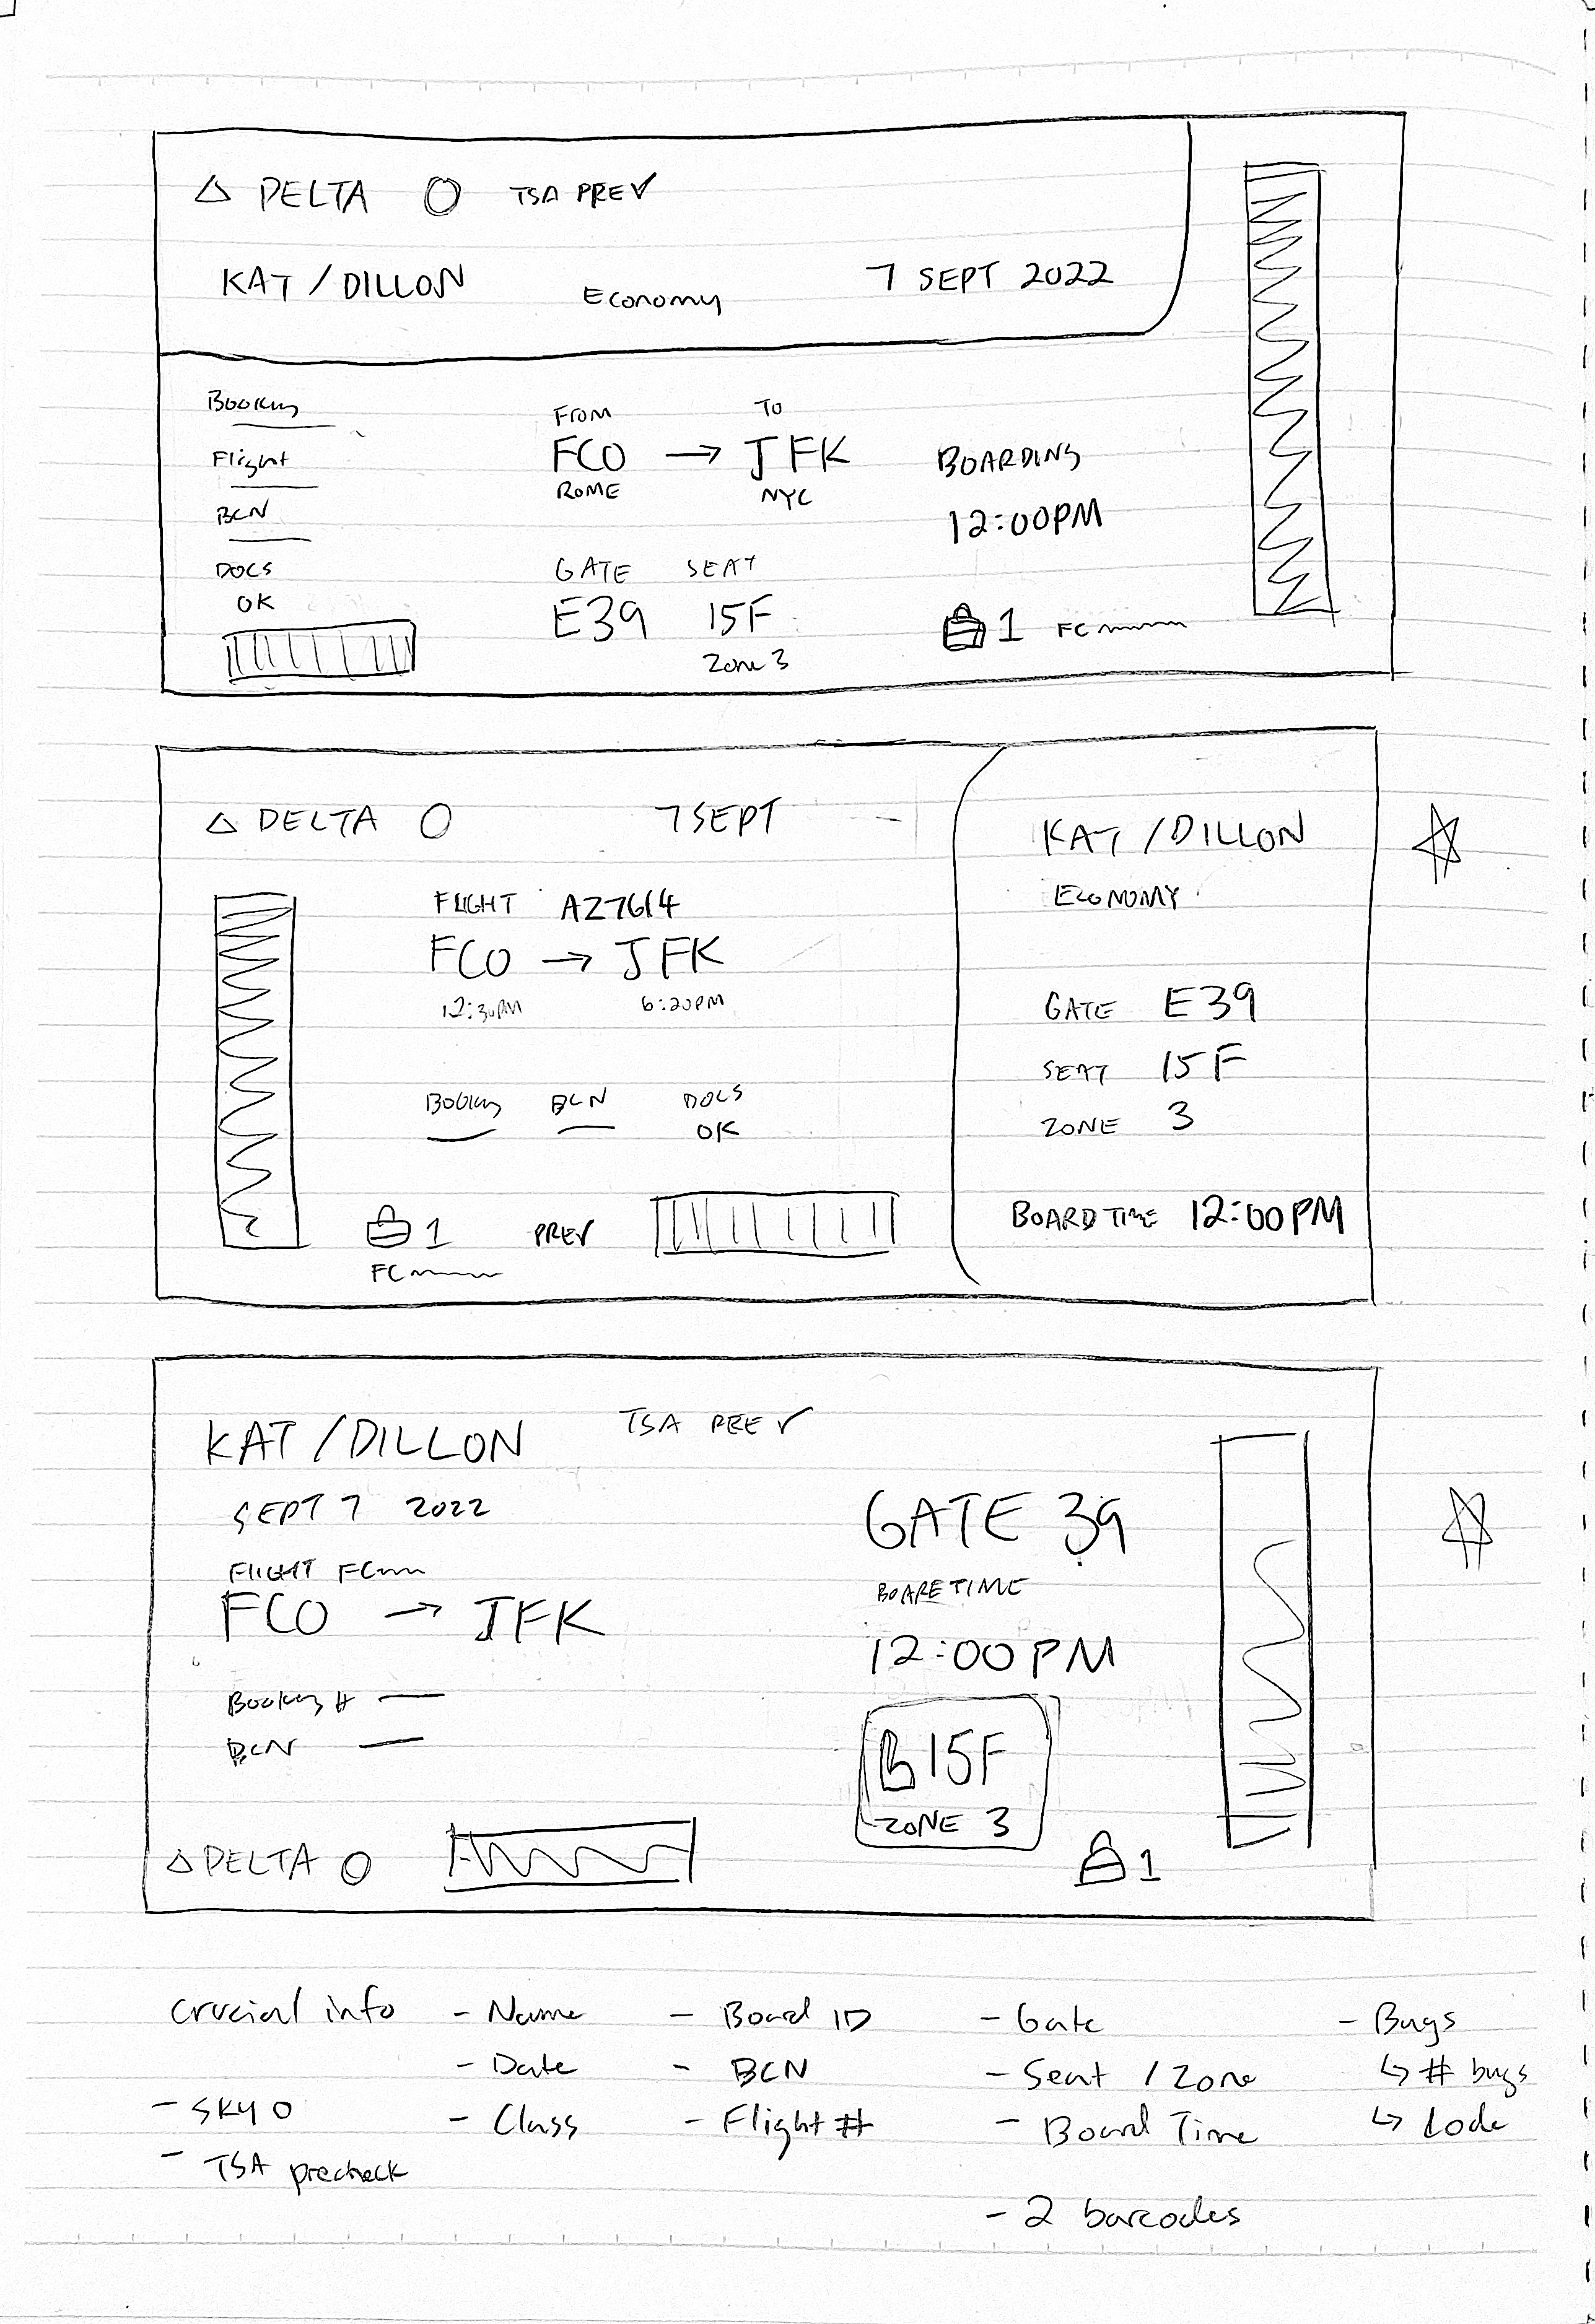 △ DELTA O TSA PRE✓
KAT / DILLON Economy 7 SEPT 2022
Booking
Flight
BCN
DOCS
OK
FROM TO
FCO → JFK
ROME NYC
GATE SEAT
E39 15F
Zone 3
BOARDING
12:00PM
1 FC
△ DELTA O 7 SEPT
FLIGHT AZ7614
FCO → JFK
12:30PM 6:20PM
Booking BCN DOCS
OK
1 PRE✓
FC
KAT / DILLON
ECONOMY
GATE E39
SEAT 15F
ZONE 3
BOARD TIME 12:00PM
KAT / DILLON TSA PRE ✓
SEPT 7 2022
FLIGHT FC
FCO → JFK
Booking #
BCN
△ DELTA O
GATE 39
BOARE TIME
12:00 PM
15F
ZONE 3
1
Crucial info
- SKY O
- TSA precheck
- Name
- Date
- Class
- Board ID
- BCN
- Flight #
- Gate
- Seat / Zone
- Board Time
- 2 barcodes
- Bags
↳ # bags
↳ Code